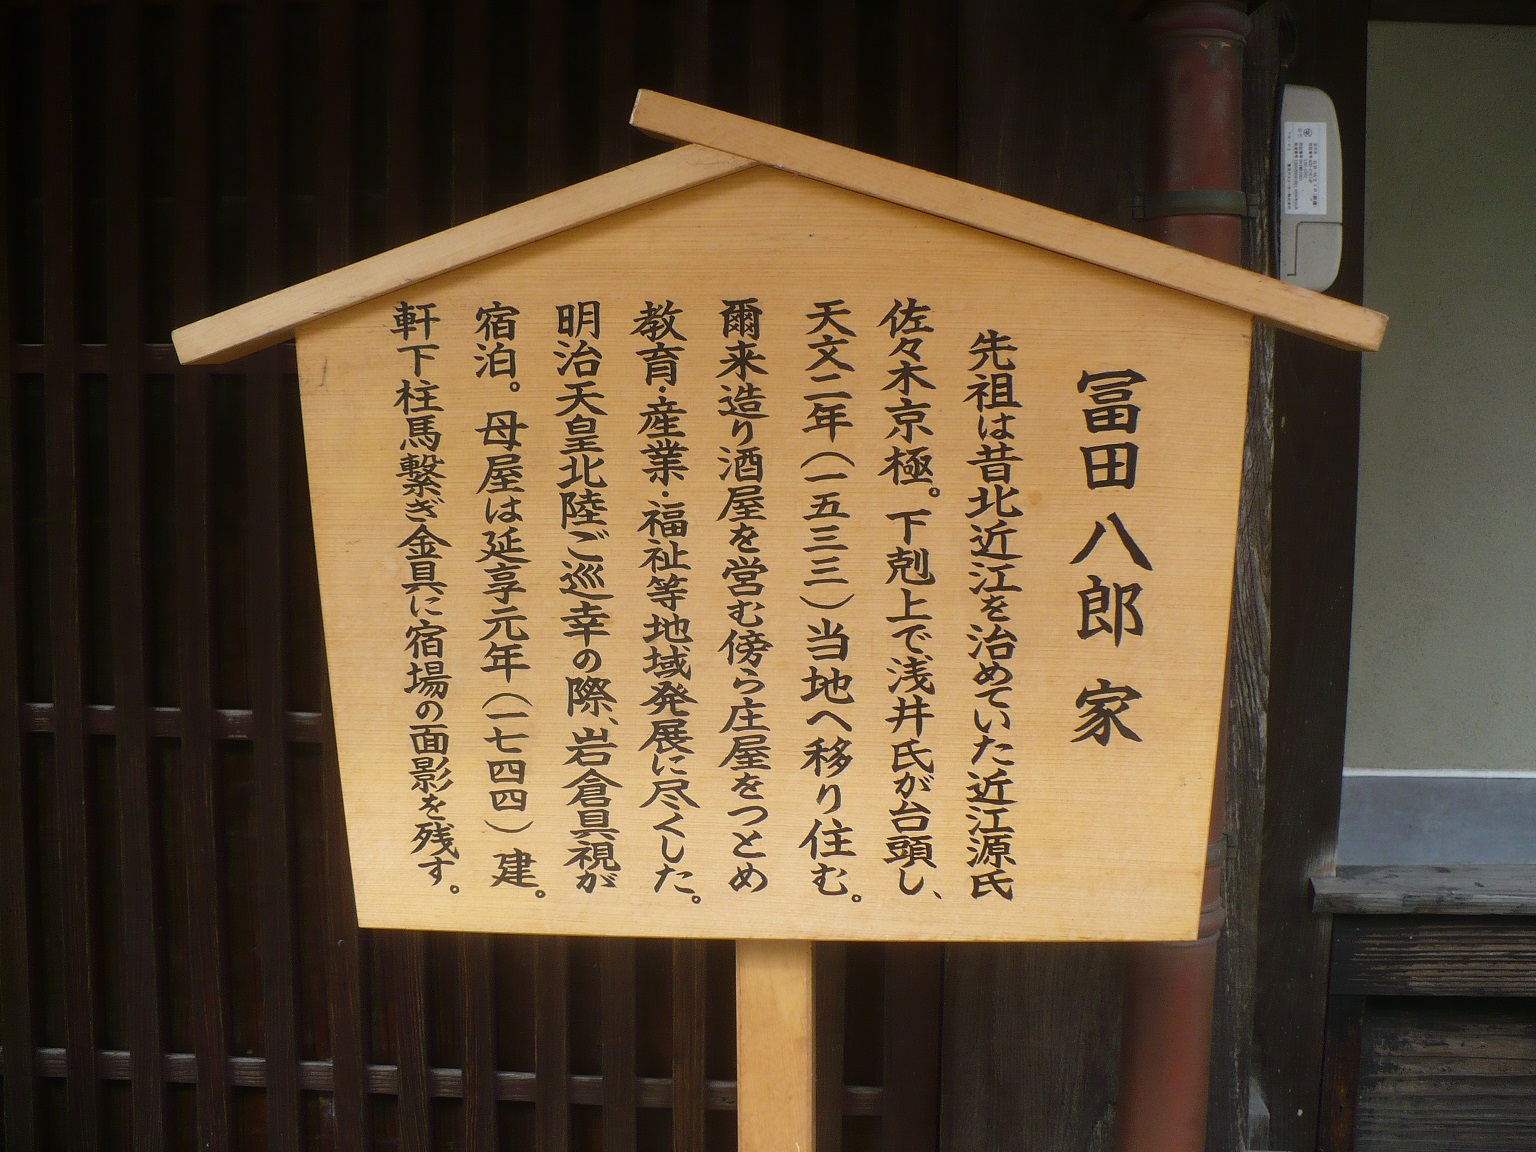 冨田八郎家
先祖は昔北近江を治めていた近江源氏
佐々木京極。下剋上で浅井氏が台頭し、
天文二年（一五三三）当地へ移り住む。
爾来造り酒屋を営む傍ら庄屋をつとめ
教育・産業・福祉等地域発展に尽くした。
明治天皇北陸ご巡幸の際、岩倉具視が
宿泊。母屋は延享元年（一七四四）建。
軒下柱馬繋ぎ金具に宿場の面影を残す。